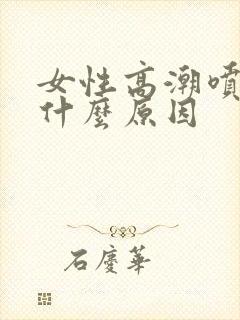 女性高潮噴
什麼原因
石慶華